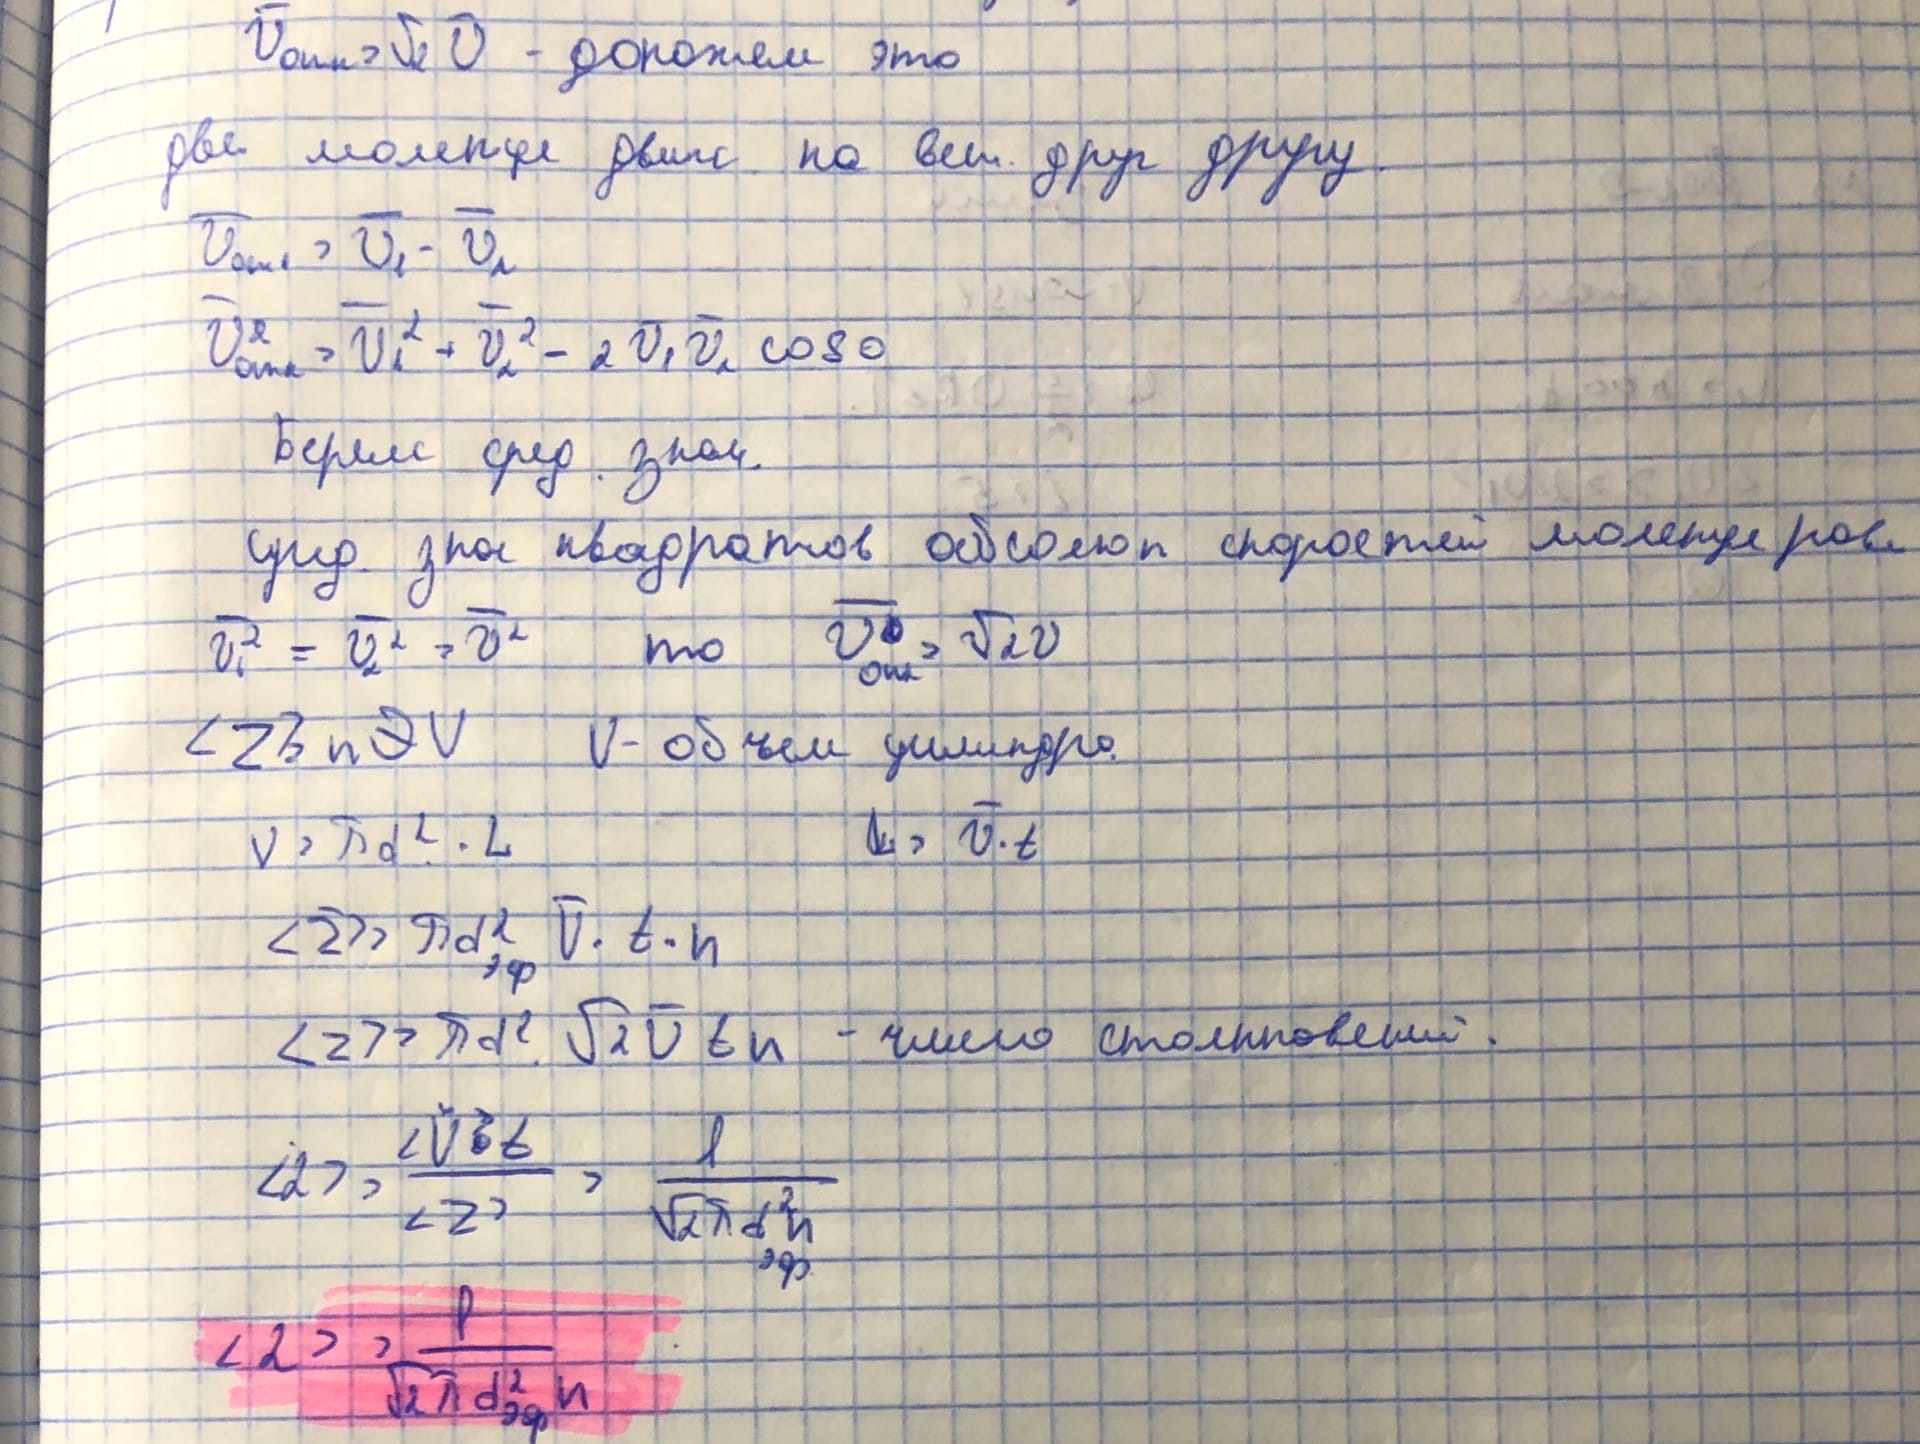 v̄отн = √2 v̄ - докажем это
две молекул движ. на вст. друг другу.
v̄отн = v̄₁ - v̄₂
v̄²отн = v̄₁² + v̄₂² - 2 v̄₁ v̄₂ cos 0
Берем сред. знач.
сред. знач квадратов абсолют скоростей молекул равн
v̄₁² = v̄₂² = v̄² то v̄отн = √2 v
V - объем цилиндра.
V = πd² · L L = v̄ · t
<z> = πd²эф v̄ · t · n
<z> = πd² √2 v̄ t n - число столкновений.
<λ> = <v̄>t / <z> = 1 / √2 πd²эф n
<λ> = 1 / √2 πd²эф n